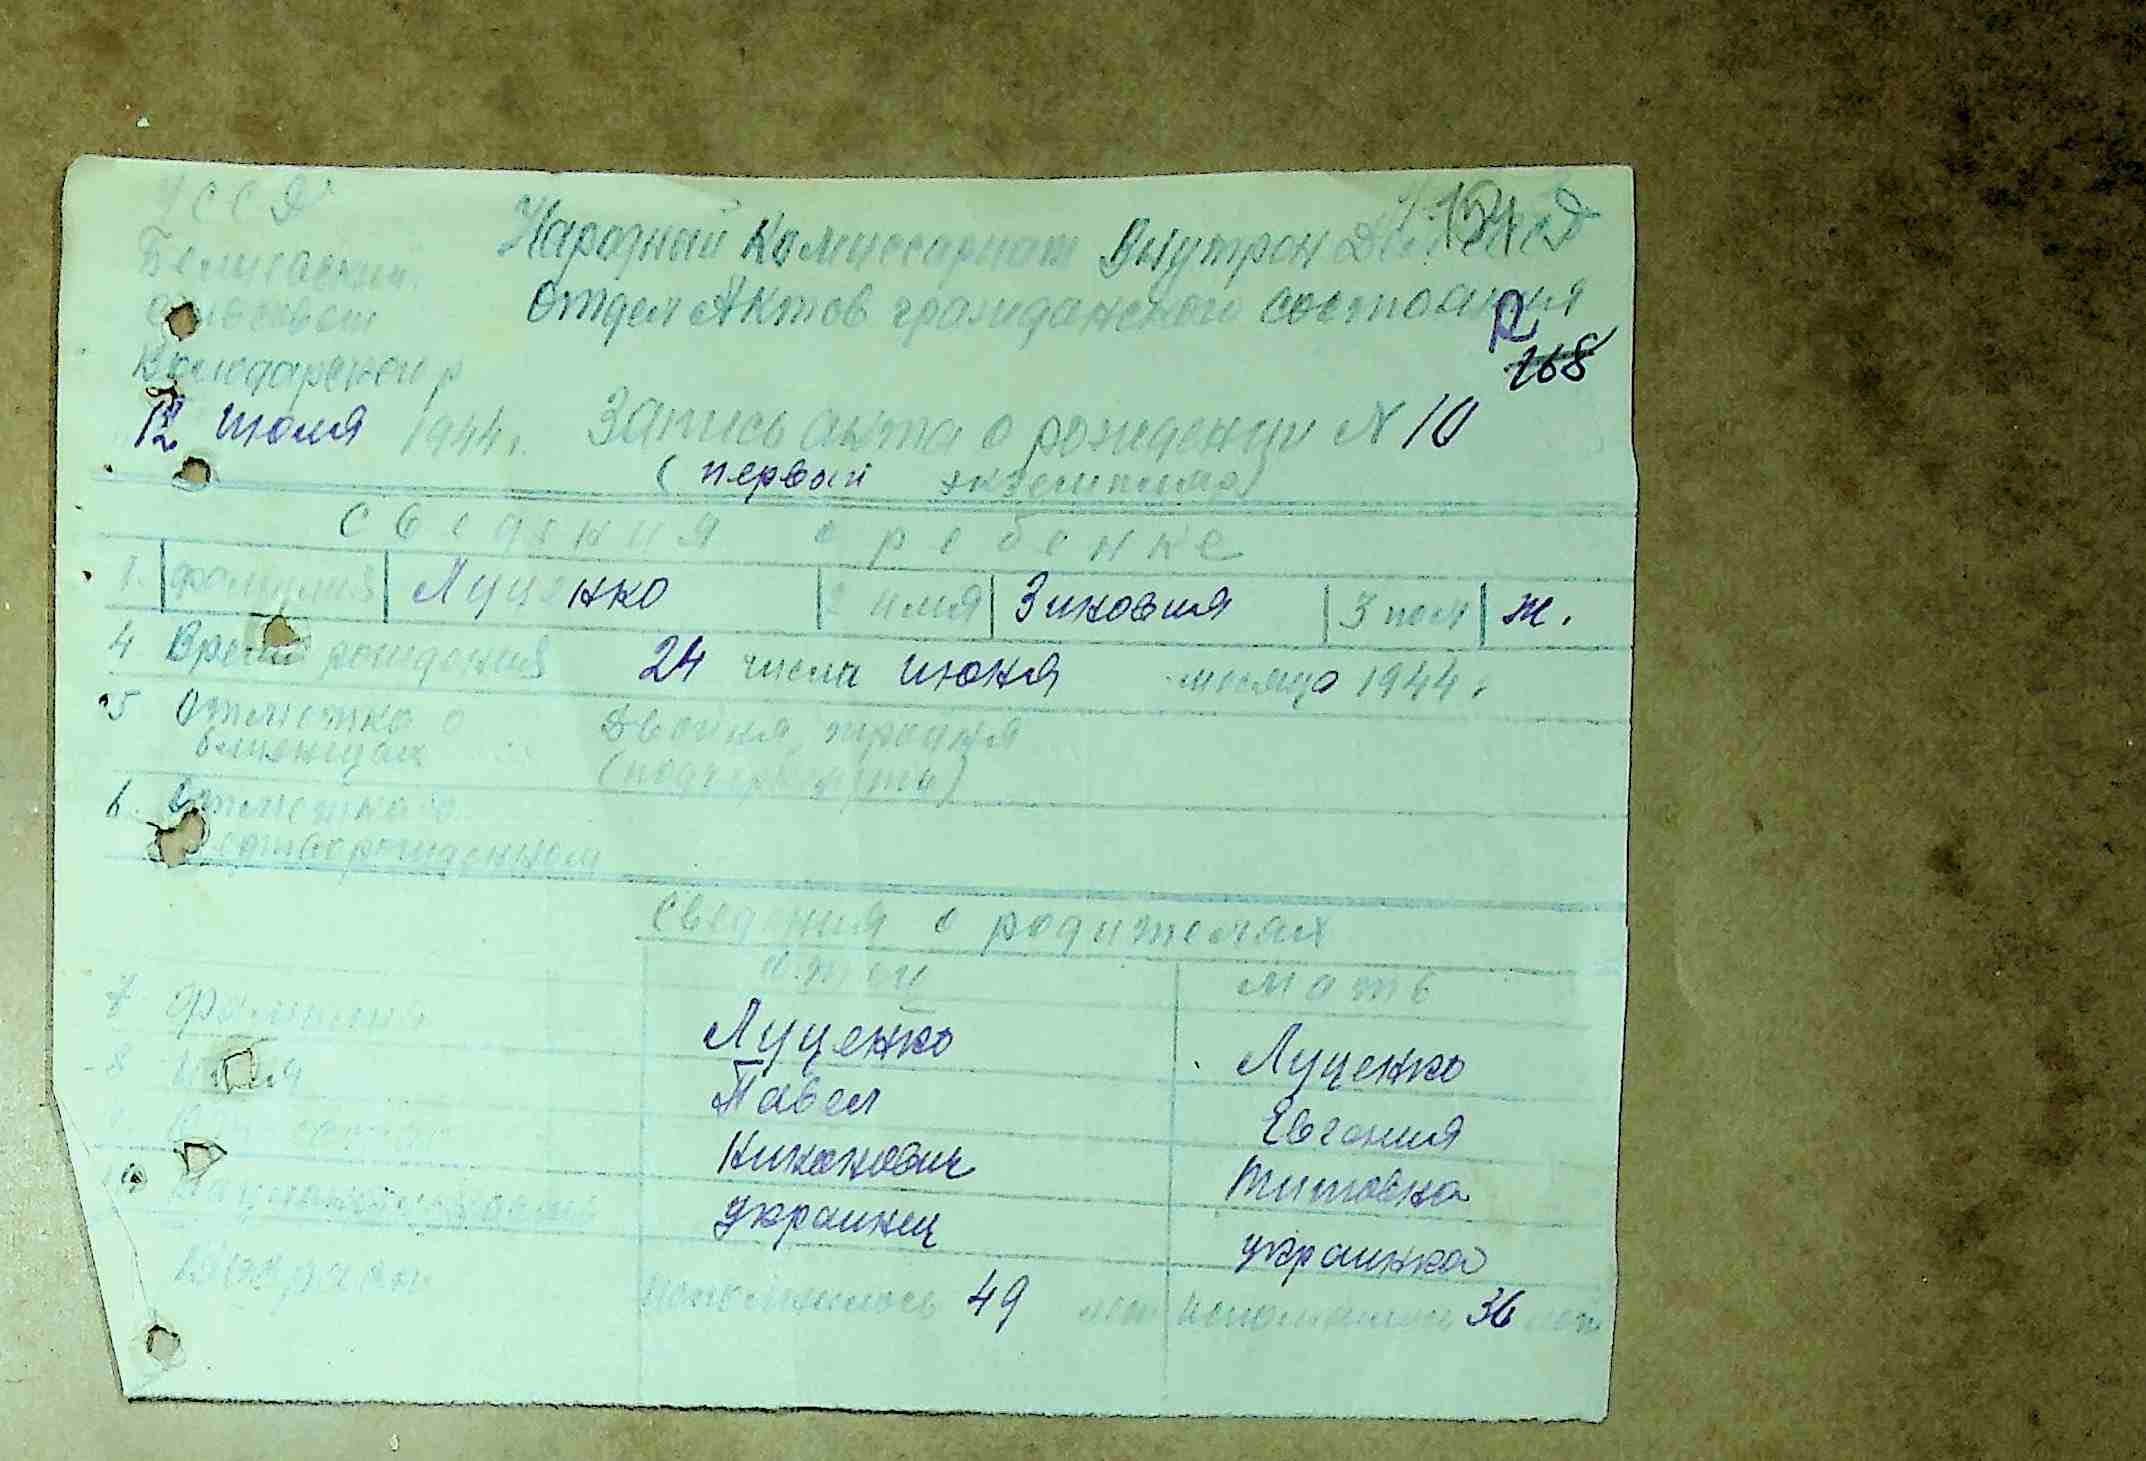 УССР
Народный Комиссариат Внутрен Дел
сельсовет
Отдел Актов гражданского состояния
Володарского р
168
12 июля 1944 г. Запись акта о рождении N 10
(первый экземпляр)
Сведения о ребенке
1. фамилия Луценко 2 имя Зиновия 3 пол ж.
4 Время рождения 24 числа июня месяца 1944 г
5 Отметка о близнецах Двойня, тройня (подчеркнуть)
6. Отметка о мертворожденном
Сведения о родителях
отец мать
7 Фамилия Луценко Луценко
8 Имя Павел Евгения
9 Отчество Никонович Титовна
10 Национальность украинец украинка
Возраст исполнилось 49 лет исполнилось 36 лет